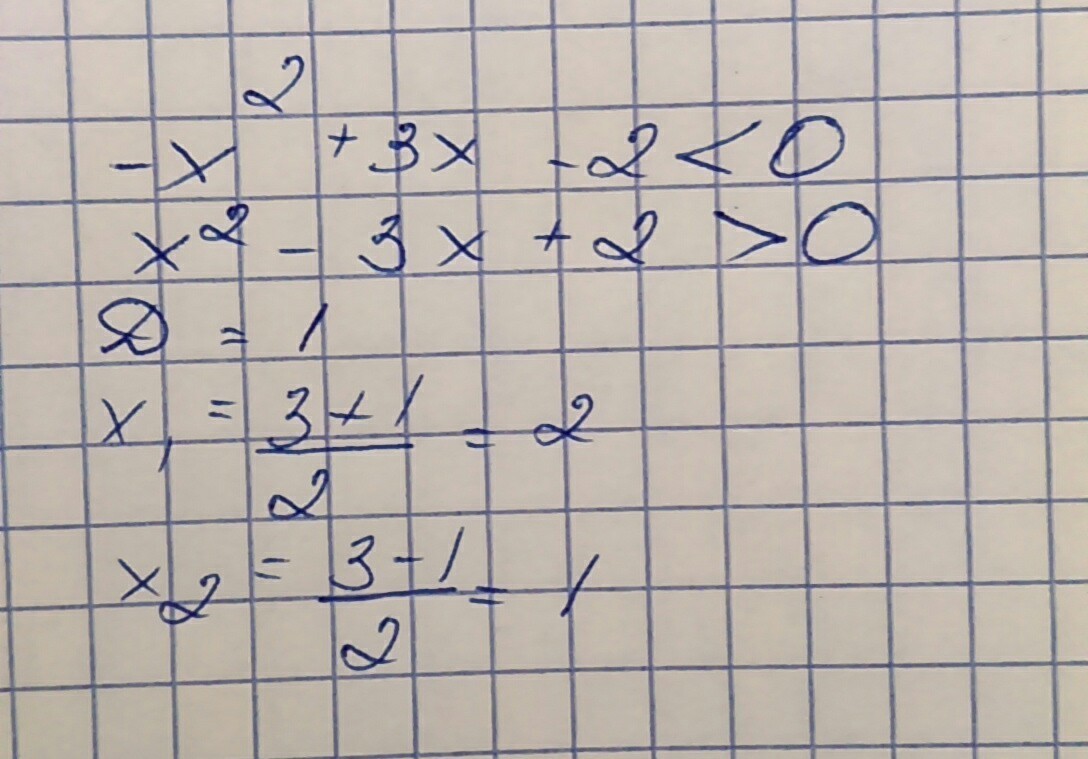 -x² +3x -2<0
x² - 3x + 2 >0
D = 1
x₁ = (3+1)/2 = 2
x₂ = (3-1)/2 = 1